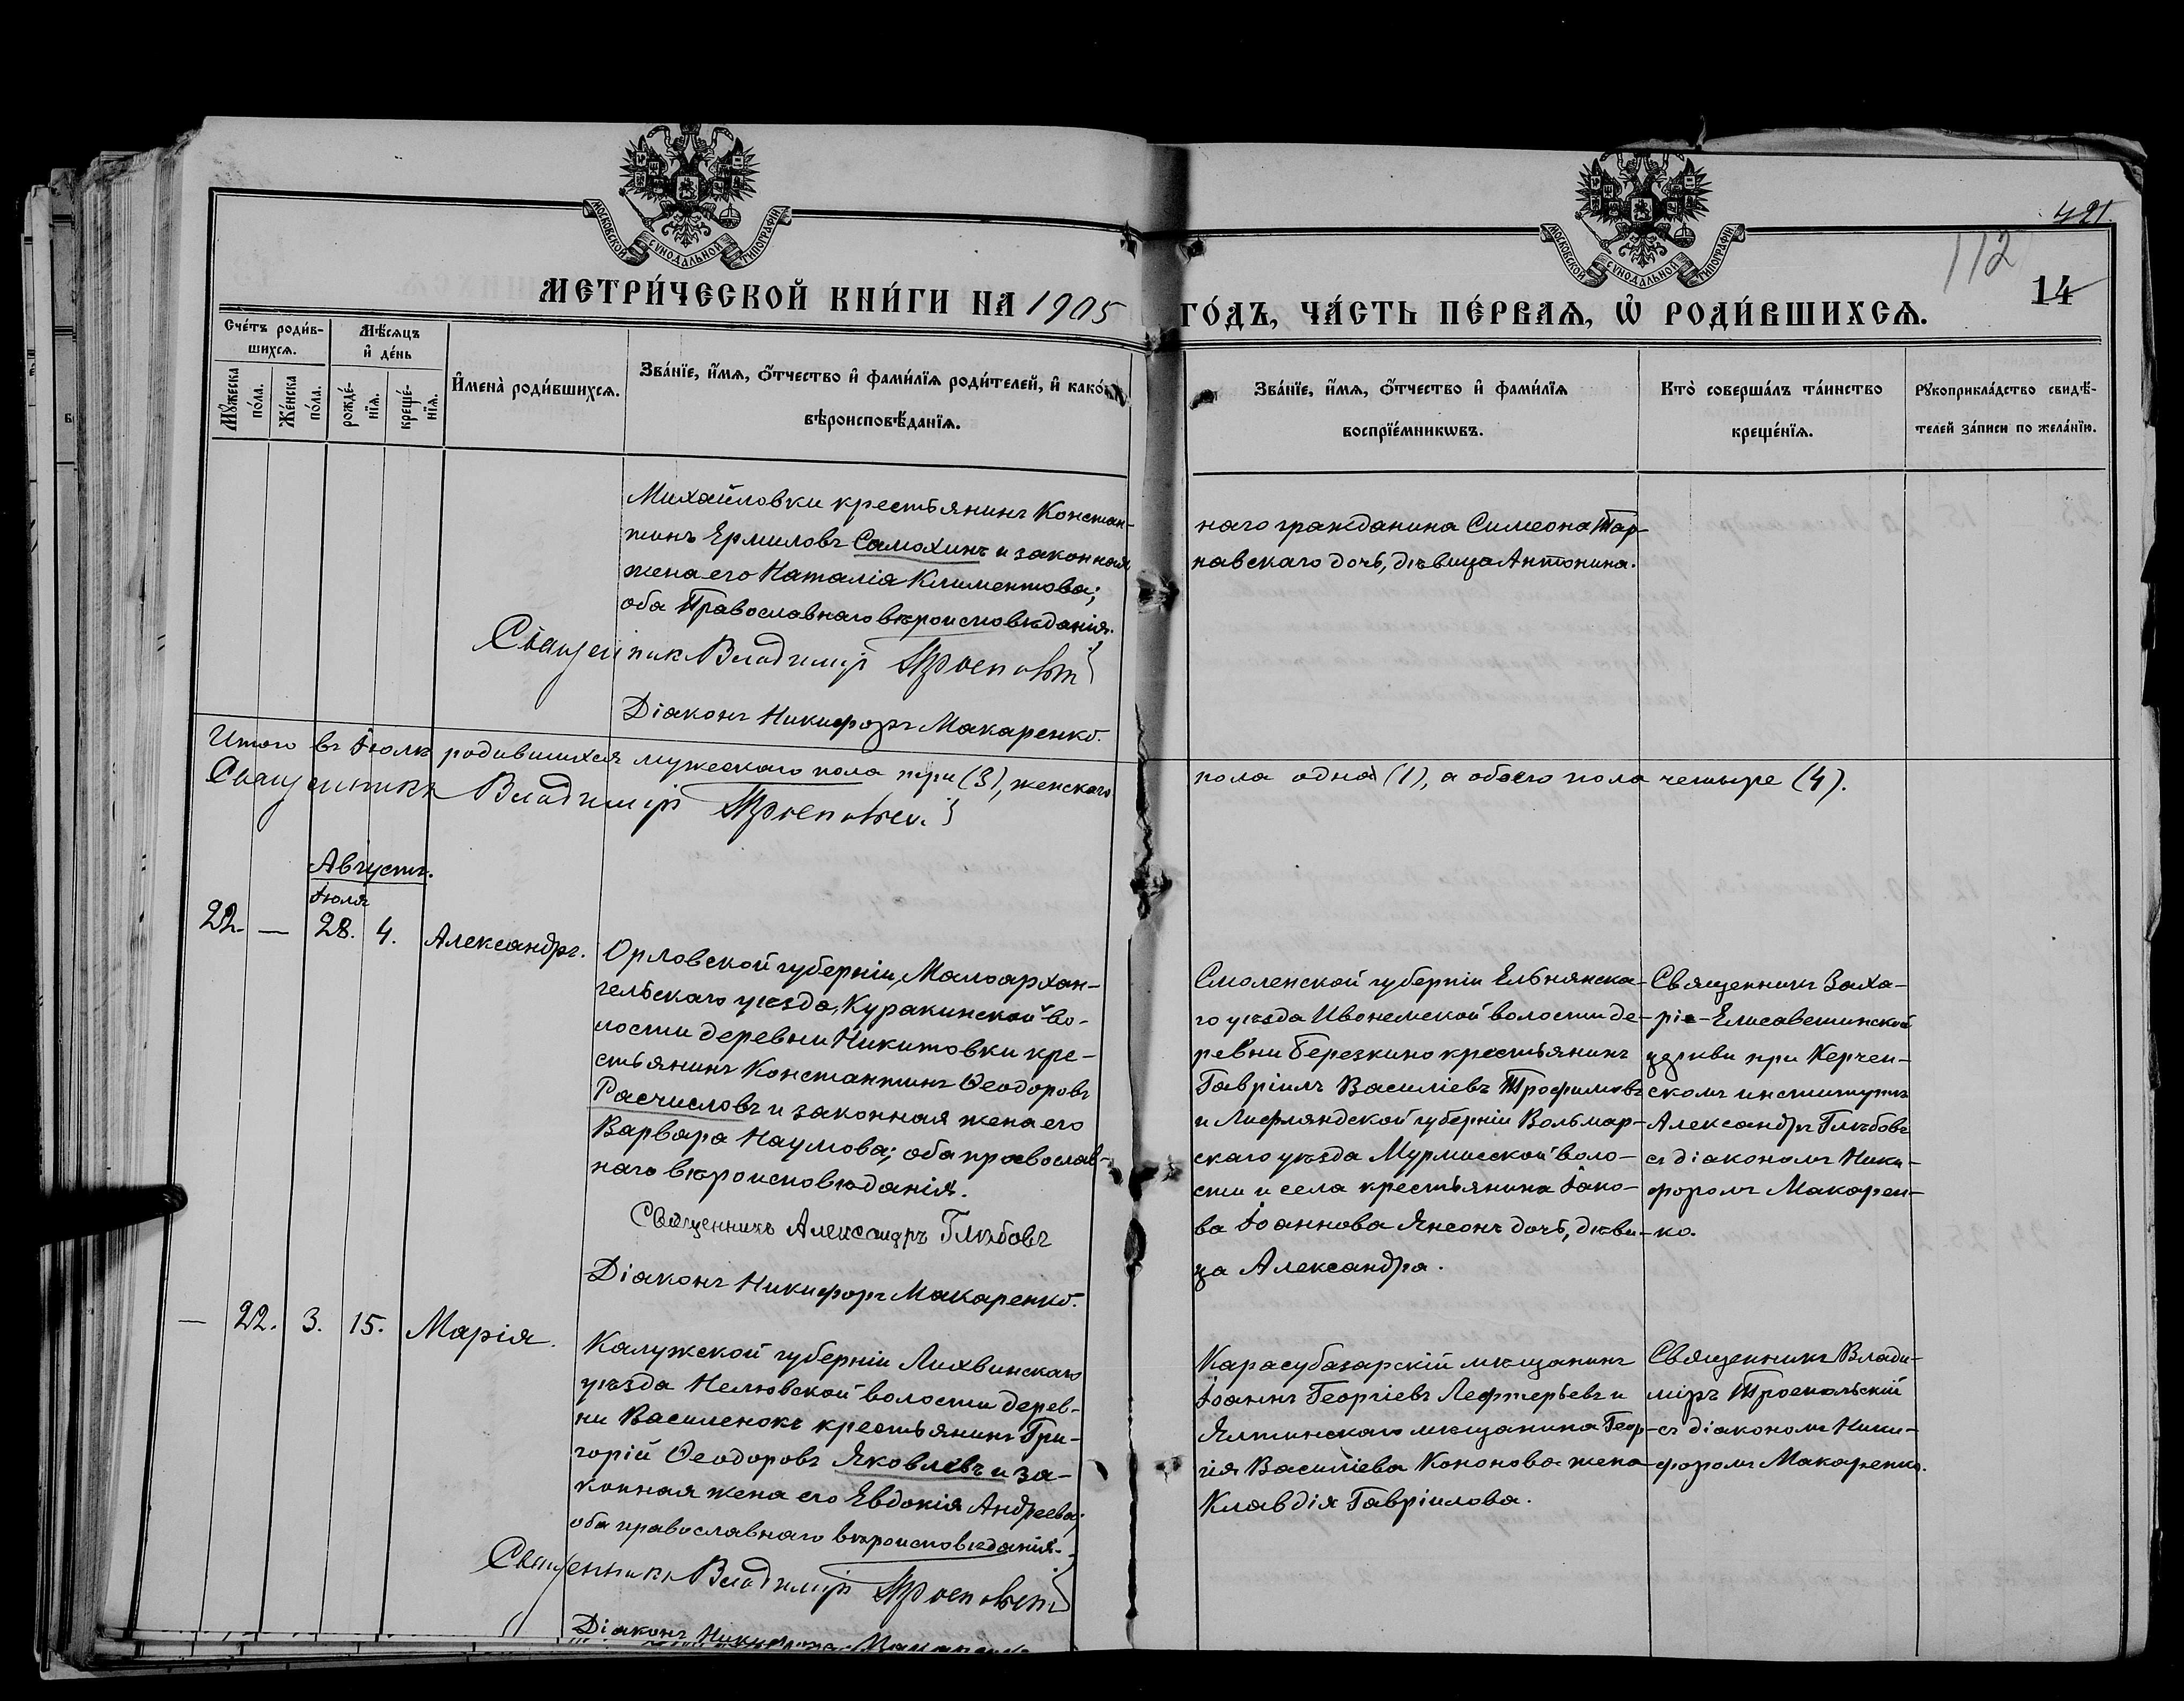 МОСКОВСКОЙ СѴНОДАЛЬНОЙ ТИПОГРАФІИ
МОСКОВСКОЙ СѴНОДАЛЬНОЙ ТИПОГРАФІИ
112
14
МЕТРИ́ЧЕСКОЙ КНИ́ГИ НА 1905
ГО́ДЪ, ЧА́СТЬ ПЕ́РВАѦ, Ѡ҆ РОДИ́ВШИХСѦ.
Сче́тъ роди́в-
шихсѧ.
Мѣ́сѧцъ
и҆ де́нь
Мꙋ́жеска
по́ла.
Же́нска
по́ла.
рожде́-
нїѧ.
креще́-
нїѧ.
И҆мена̀ роди́вшихсѧ.
Зва́нїе, и҆́мѧ, ѻ҆́тчество и҆ фами́лїѧ роди́телей, и҆ како́гѡ
вѣроисповѣ́данїѧ.
Зва́нїе, и҆́мѧ, ѻ҆́тчество и҆ фами́лїѧ
воспрїе́мникѡвъ.
Кто̀ соверша́лъ та́инство
креще́нїѧ.
Рꙋкоприкла́дство свидѣ́-
телей за́писи по жела́нїю.
Михайловки крестьянинъ Констан-
тинъ Ермиловъ Самохинъ и законная
жена его Наталія Климентова;
оба Православнаго вѣроисповѣданія.
Священникъ Владиміръ Троепольскій
Діаконъ Никифоръ Макаренко.
наго гражданина Симеона Тар-
навскаго дочь, дѣвица Антонина.
Итого въ Іюлѣ родившихся мужескаго пола три (3), женскаго
пола одна (1), а обоего пола четыре (4).
Священникъ Владиміръ Троепольскій
Августъ.
Іюля
22. — 28. 4. Александръ.
Орловской губерніи, Малоархан-
гельскаго уѣзда, Куракинской во-
лости деревни Никитовки кре-
стьянинъ Константинъ Ѳеодоровъ
Расчисловъ и законная жена его
Варвара Наумова; оба православ-
наго вѣроисповѣданія.
Священникъ Александръ Глѣбовъ
Діаконъ Никифоръ Макаренко.
Смоленской губерніи Ельнянска-
го уѣзда Ивонемской волости де-
ревни Березкино крестьянинъ
Гавріилъ Василіевъ Трофимовъ
и Лифляндской губерніи Вольмар-
скаго уѣзда Мурмисской воло-
сти и села крестьянина Іако-
ва Іоаннова Янсонъ дочь, дѣви-
ца Александра.
Священникъ Заха-
ріе-Елисаветинской
церкви при Керчен-
скомъ институтѣ
Александръ Глѣбовъ
съ діакономъ Ники-
форомъ Макарен-
ко.
— 22. 3. 15. Марія.
Калужской губерніи Лихвинскаго
уѣзда Нелювской волости дерев-
ни Василенокъ крестьянинъ Гри-
горій Ѳеодоровъ Яковлевъ и за-
конная жена его Евдокія Андреева;
оба православнаго вѣроисповѣданія.
Священникъ Владиміръ Троепольскій
Діаконъ Никифоръ Макаренко
Карасубазарскій мѣщанинъ
Іоаннъ Георгіевъ Лефтерьевъ и
Ялтинскаго мѣщанина Геор-
гія Василіева Кононова жена
Клавдія Гавріилова.
Священникъ Влади-
міръ Троепольскій
съ діакономъ Ники-
форомъ Макаренко.